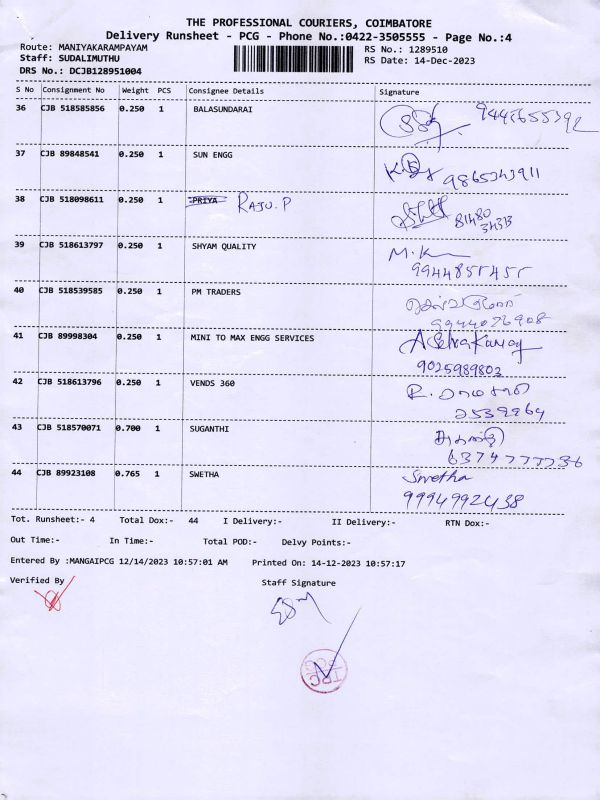 THE PROFESSIONAL COURIERS, COIMBATORE
Delivery Runsheet - PCG - Phone No.:0422-3505555 - Page No.:4
Route: MANIYAKARAMPAYAM RS No.: 1289510
Staff: SUDALIMUTHU RS Date: 14-Dec-2023
DRS No.: DCJB128951004
S No Consignment No Weight PCS Consignee Details Signature
36 CJB 518585856 0.250 1 BALASUNDARAI
37 CJB 89848541 0.250 1 SUN ENGG
9865343911
38 CJB 518098611 0.250 1 PRIYA RAJU.P
81480
34313
39 CJB 518613797 0.250 1 SHYAM QUALITY M.K
9944855455
40 CJB 518539585 0.250 1 PM TRADERS
9944026908
41 CJB 89998304 0.250 1 MINI TO MAX ENGG SERVICES
9025989802
42 CJB 518613796 0.250 1 VENDS 360
43 CJB 518570071 0.700 1 SUGANTHI
6374777736
44 CJB 89923108 0.765 1 SWETHA Swetha
9994992438
Tot. Runsheet:- 4 Total Dox:- 44 I Delivery:- II Delivery:- RTN Dox:-
Out Time:- In Time:- Total POD:- Delvy Points:-
Entered By :MANGAIPCG 12/14/2023 10:57:01 AM Printed On: 14-12-2023 10:57:17
Verified By Staff Signature